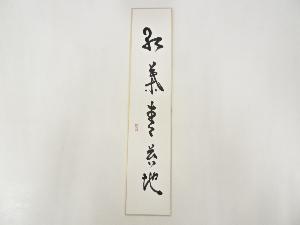 紅葉青苔地